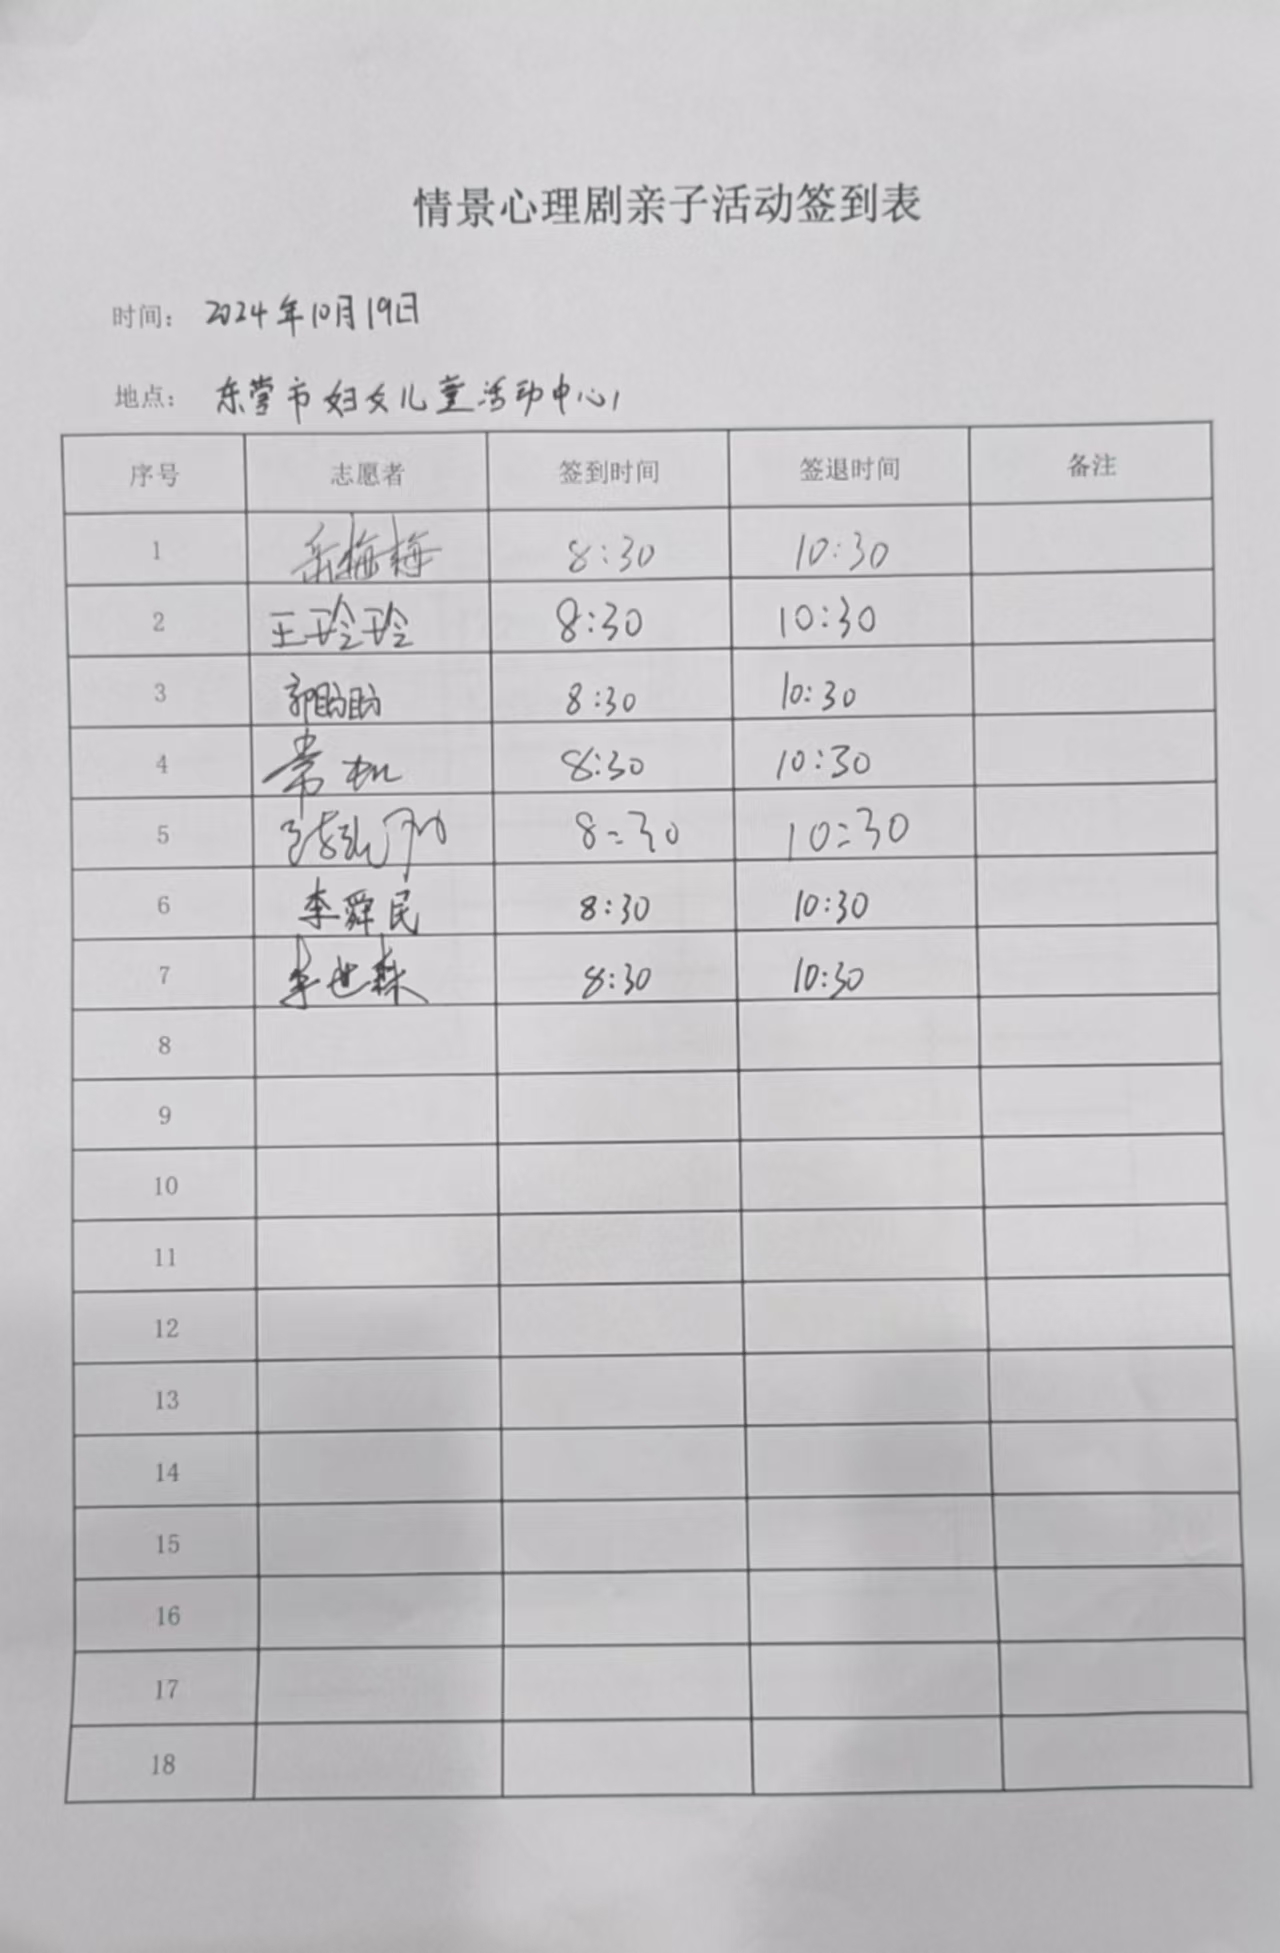 情景心理剧亲子活动签到表
时间： 2024年10月19日
地点： 东营市妇女儿童活动中心
序号 志愿者 签到时间 签退时间 备注
1 岳梅梅 8:30 10:30
2 王玲玲 8:30 10:30
3 郭盼盼 8:30 10:30
4 8:30 10:30
5 8:30 10:30
6 李舜民 8:30 10:30
7 李世森 8:30 10:30
8
9
10
11
12
13
14
15
16
17
18